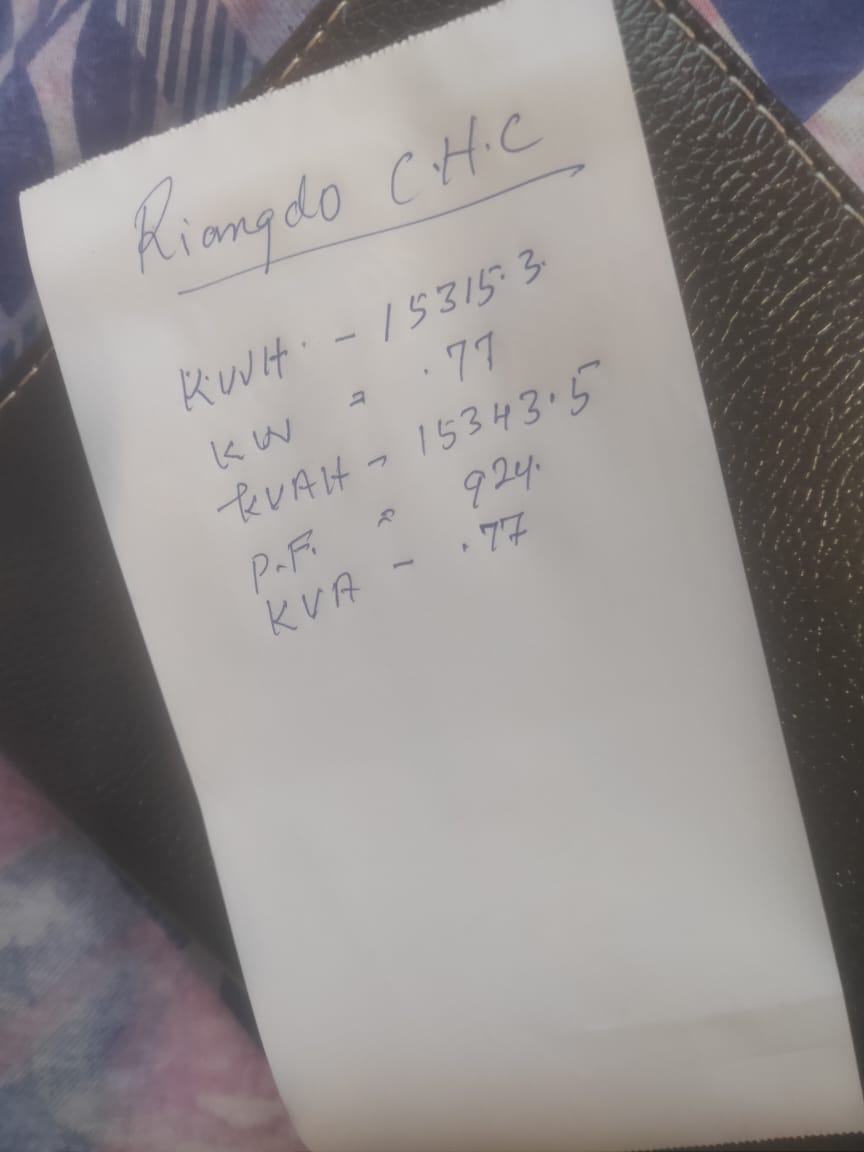 Riangdo C.H.C
KWH - 15315.3
KW = .77
KVAH - 15343.5
P.F. = 924.
KVA - .77